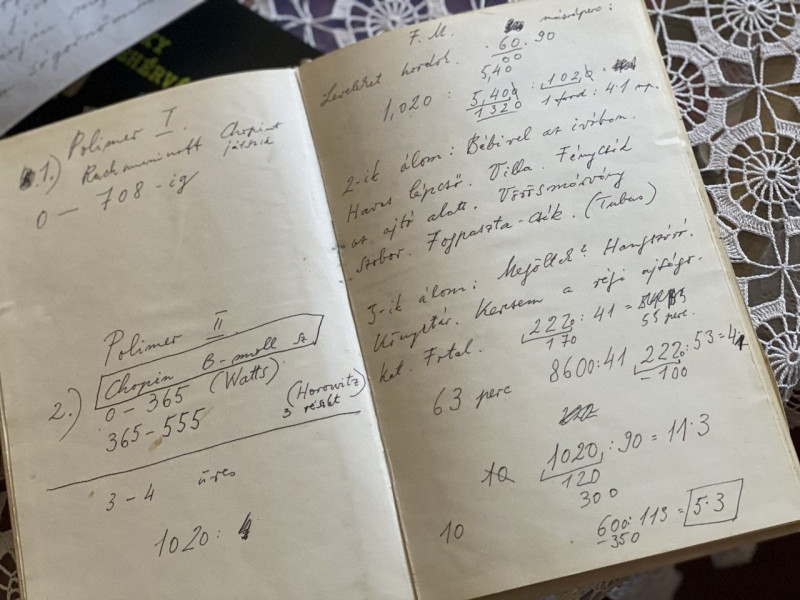 1.) Polimer I
Rachmaninoff Chopint
játszik
0 — 708-ig
Polimer II
2.) Chopin B-moll sz
0 — 365 (Watts)
365 — 555 (Horowitz)
3 részt
3 — 4 üres
1020 :
F. M. másodperc:
Leveleket hordok. 60 . 90
00
5,40
1,020 : 5,400 : 1020
1320 1 ford : 4.1 mp.
2-ik álom: Bébivel az ivóban.
Havas lépcső. Villa. Fénycsík
az ajtó alatt. Vörösmárvány
szobor. Fogpaszta-csík. (Tubus)
3-ik álom: Megöltek? Hangszóró.
Könyvtár. Keresem a régi ujságo-
kat. 2220 : 41 =
170 55 perc.
63 perc 8600:41 2220 : 53 = 41
- 100
1020 : 90 = 11.3
120
300
10 600 : 113 = 5.3
- 350
KY